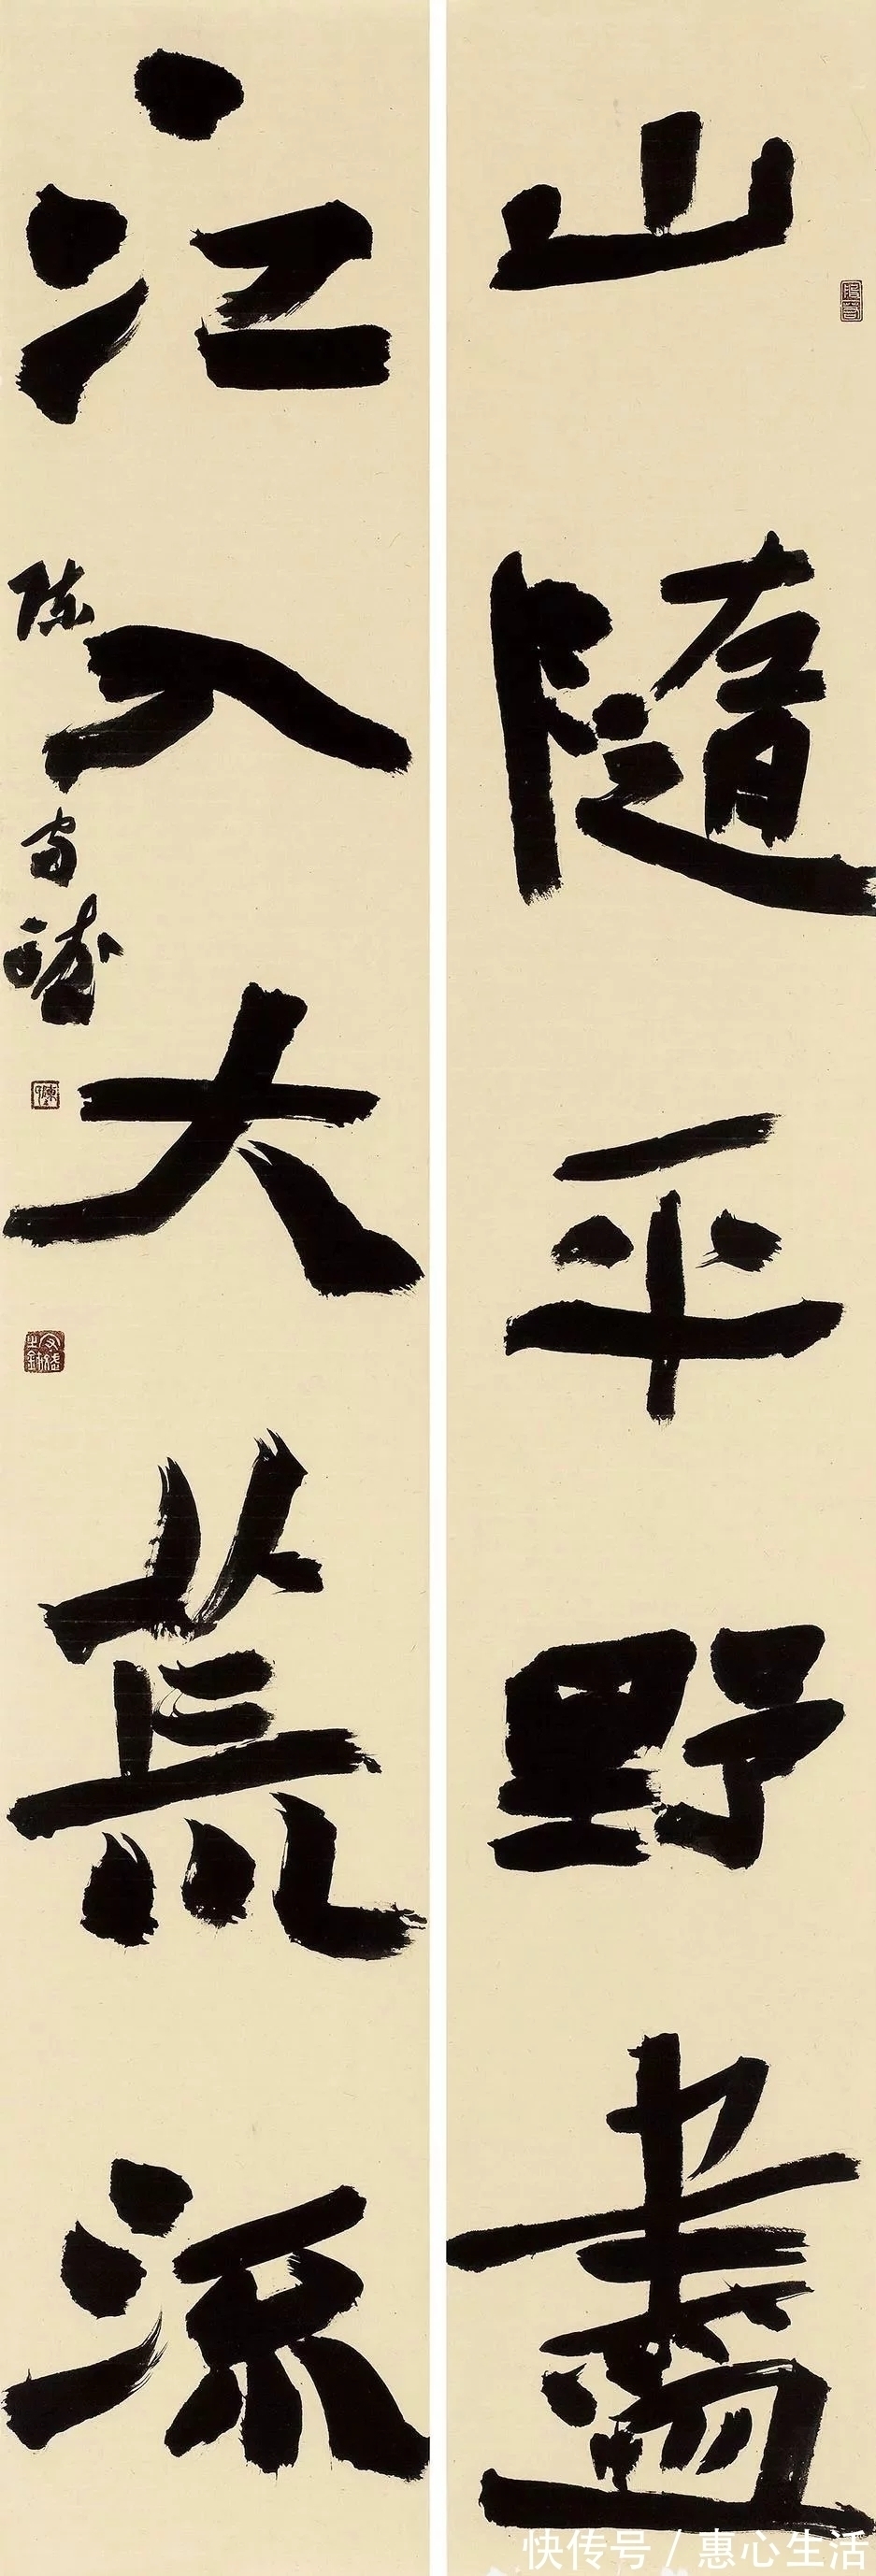 山隨平野盡
江入大荒流
陈
快传号 / 惠心生活